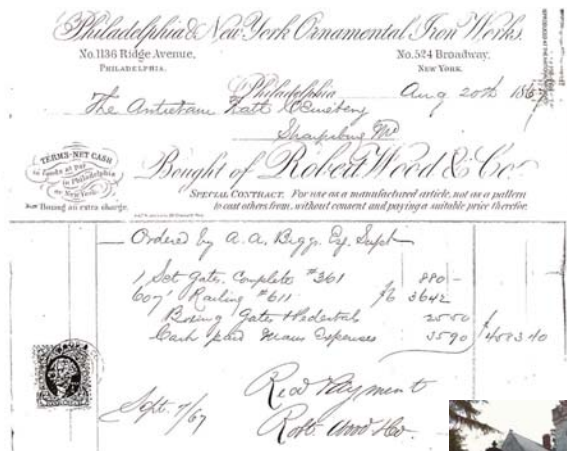 Philadelphia & New York Ornamental Iron Works.
No. 1136 Ridge Avenue, No. 524 Broadway,
PHILADELPHIA. NEW YORK.
Philadelphia Aug 20th 1867
The Antietam Natl Cemetery
Sharpsburg Md
TERMS-NET CASH
in funds at par
in Philadelphia
or New York.
Boxing an extra charge.
Bought of Robert Wood & Co
SPECIAL CONTRACT. For use as a manufactured article, not as a pattern
to cast others from, without consent and paying a suitable price therefor.
Ordered by A. A. Biggs Esq. Supt
1 Set Gates. Complete #361 880 -
607' Railing #611 $6 3642
Boxing Gates & Pedestals 25 50
Cash paid Mans Expenses 35 90 $4583 40
Recd Payment
Sept. 7/67 Robt. Wood & Co.